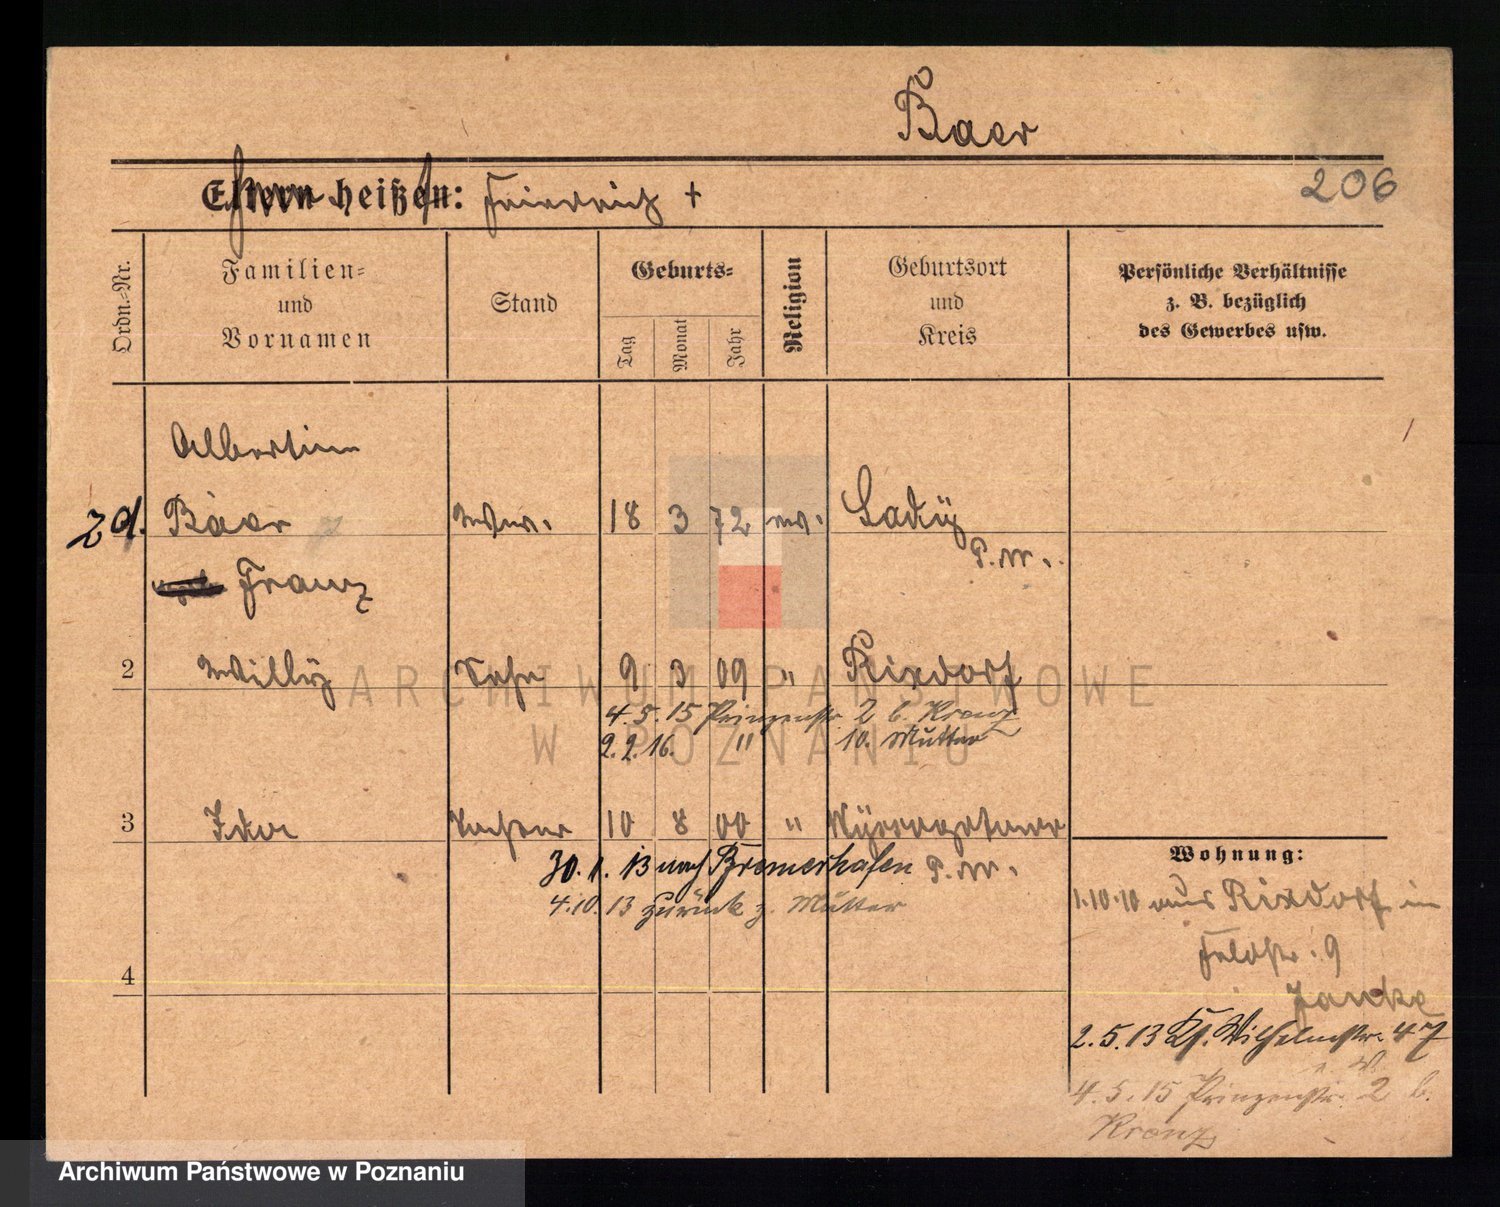 Baer
206
Eltern heißen: Friedrich +
Ordn.-Nr.
Familien-
und
Vornamen
Stand
Geburts-
Tag
Monat
Jahr
Religion
Geburtsort
und
Kreis
Persönliche Verhältnisse
z. B. bezüglich
des Gewerbes usw.
Albertine
Baer Ww. 18 3 72 ev. Sady
P. W.
Franz
2 Willy Sohn 9 3 09 " Rixdorf
4. 5. 15 Prinzenstr. 2 b. Kranz
2. 2. 16. " 10. Mutter
3 Ida Tochter 10 8 00 "
30. 1. 13 nach Bremerhafen P. W.
4. 10. 13 zurück z. Mutter
4
Wohnung:
1. 10. 10 aus Rixdorf in
Feldstr. 9
Janke
2. 5. 13 Kf. Wilhelmstr. 47
4. 5. 15 Prinzenstr. 2 b.
Kranz
ARCHIWUM PAŃSTWOWE
W POZNANIU
Archiwum Państwowe w Poznaniu